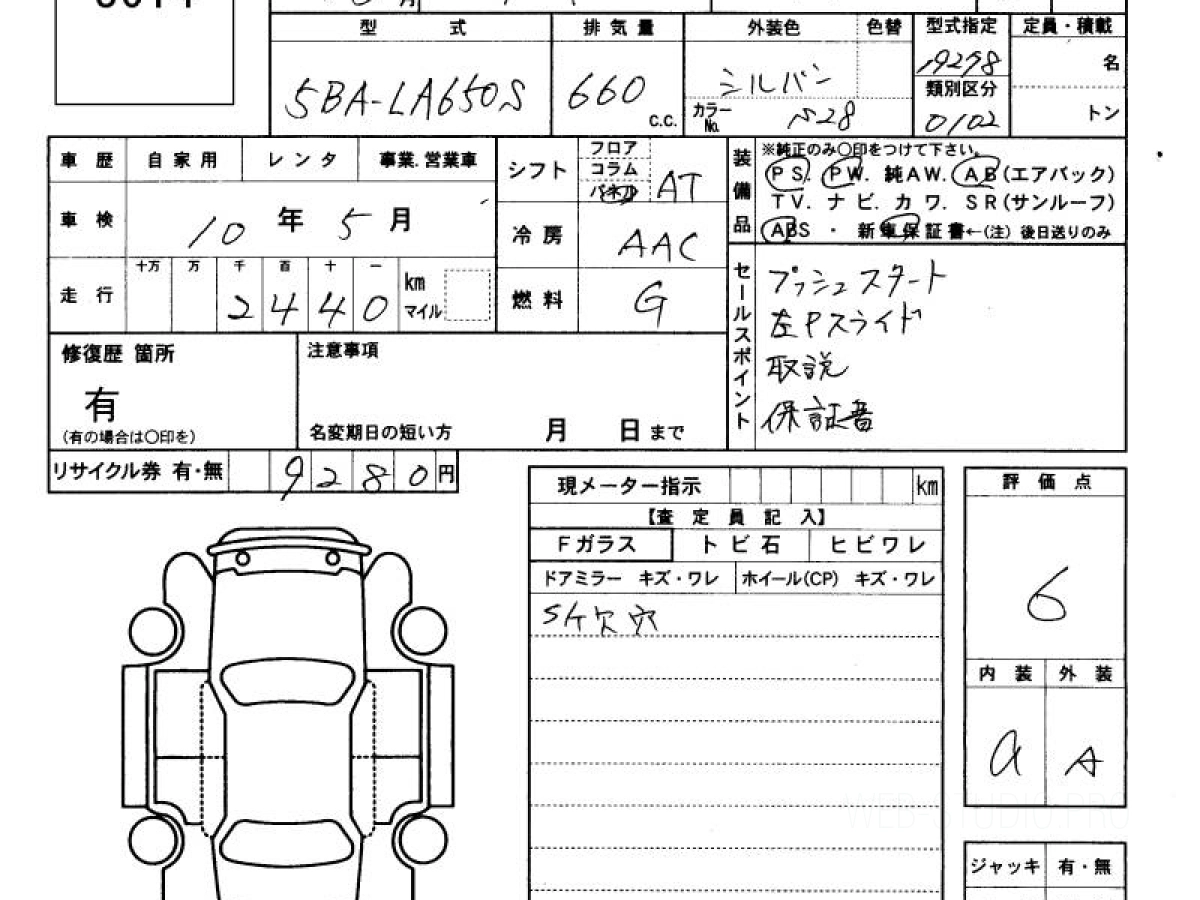 型 式 排 気 量 外装色 色替 型式指定 定員・積載
5BA-LA650S 660 c.c. シルバン カラーNo. S28 19278 名
類別区分 0102 トン
車 歴 自 家 用 レ ン タ 事業.営業車 シフト フロア コラム パネル AT
車 検 10 年 5 月 冷 房 AAC
走 行 十万 万 千 百 十 一 2 4 4 0 km マイル 燃 料 G
装備品 ※純正のみ〇印をつけて下さい。
PS. PW. 純AW. AB(エアバック)
TV. ナ ビ. カ ワ. SR(サンルーフ)
ABS ・ 新車保証書←(注) 後日送りのみ
セールスポイント プッシュスタート
左Pスライド
取説
保証書
修復歴 箇所 注意事項
有
(有の場合は〇印を) 名変期日の短い方 月 日 まで
リサイクル券 有・無 9 2 8 0 円
現メーター指示 km
【査 定 員 記 入】
Fガラス ト ビ 石 ヒ ビ ワ レ
ドアミラー キズ・ワレ ホイール(CP) キズ・ワレ
Sk欠穴
評 価 点
6
内 装 外 装
a A
WEB-STUDIO.PRO
ジャッキ 有・無